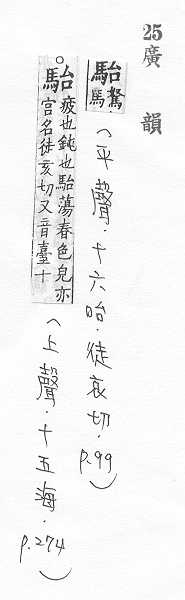 25 廣韻
駘 駑馬.(平聲.十六咍.徒哀切.p.99)
。駘 疲也鈍也駘蕩春色皃亦
宫名徒亥切又音臺十
(上聲.十五海.p.274)